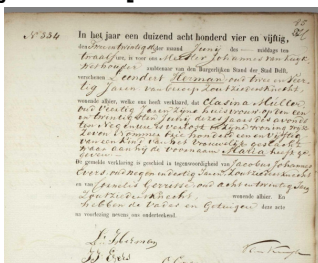 No 334
In het jaar een duizend acht honderd vier en vijftig,
den Twee en twintigsten der maand Juny des middags ten
twaalf ure, is voor ons Meester Johannes van Kuyk
Wethouder ambtenaar van den Burgerlijken Stand der Stad Delft,
verschenen Leendert Herman oud twee en veer-
tig Jaren van beroep Zoutziedersknecht,
wonende alhier, welke ons heeft verklaard, dat Clasina Mullen
oud veertig Jaren zyne huisvrouw op den een
en twintigsten Juny dezes Jaars des avonds
ten negen ure is verlost in zyne woning wyk
Zeven nommer drie honderd een en vyftig
van een Kind van het vrouwelyk geslacht
waar aan hy de voornaam Maria heeft ge-
geven
De gemelde verklaring is geschied in tegenwoordigheid van Jacobus Johannes
Evers, oud negen en dertig Jaren, Zoutziedersknecht
en van Cornelis Gerresse, oud acht en twintig Jaren
Zoutziedersknecht, wonende alhier. En
hebben de Vader en Getuigen deze acte
na voorlezing nevens ons onderteekend.
L. Herman
J J Evers